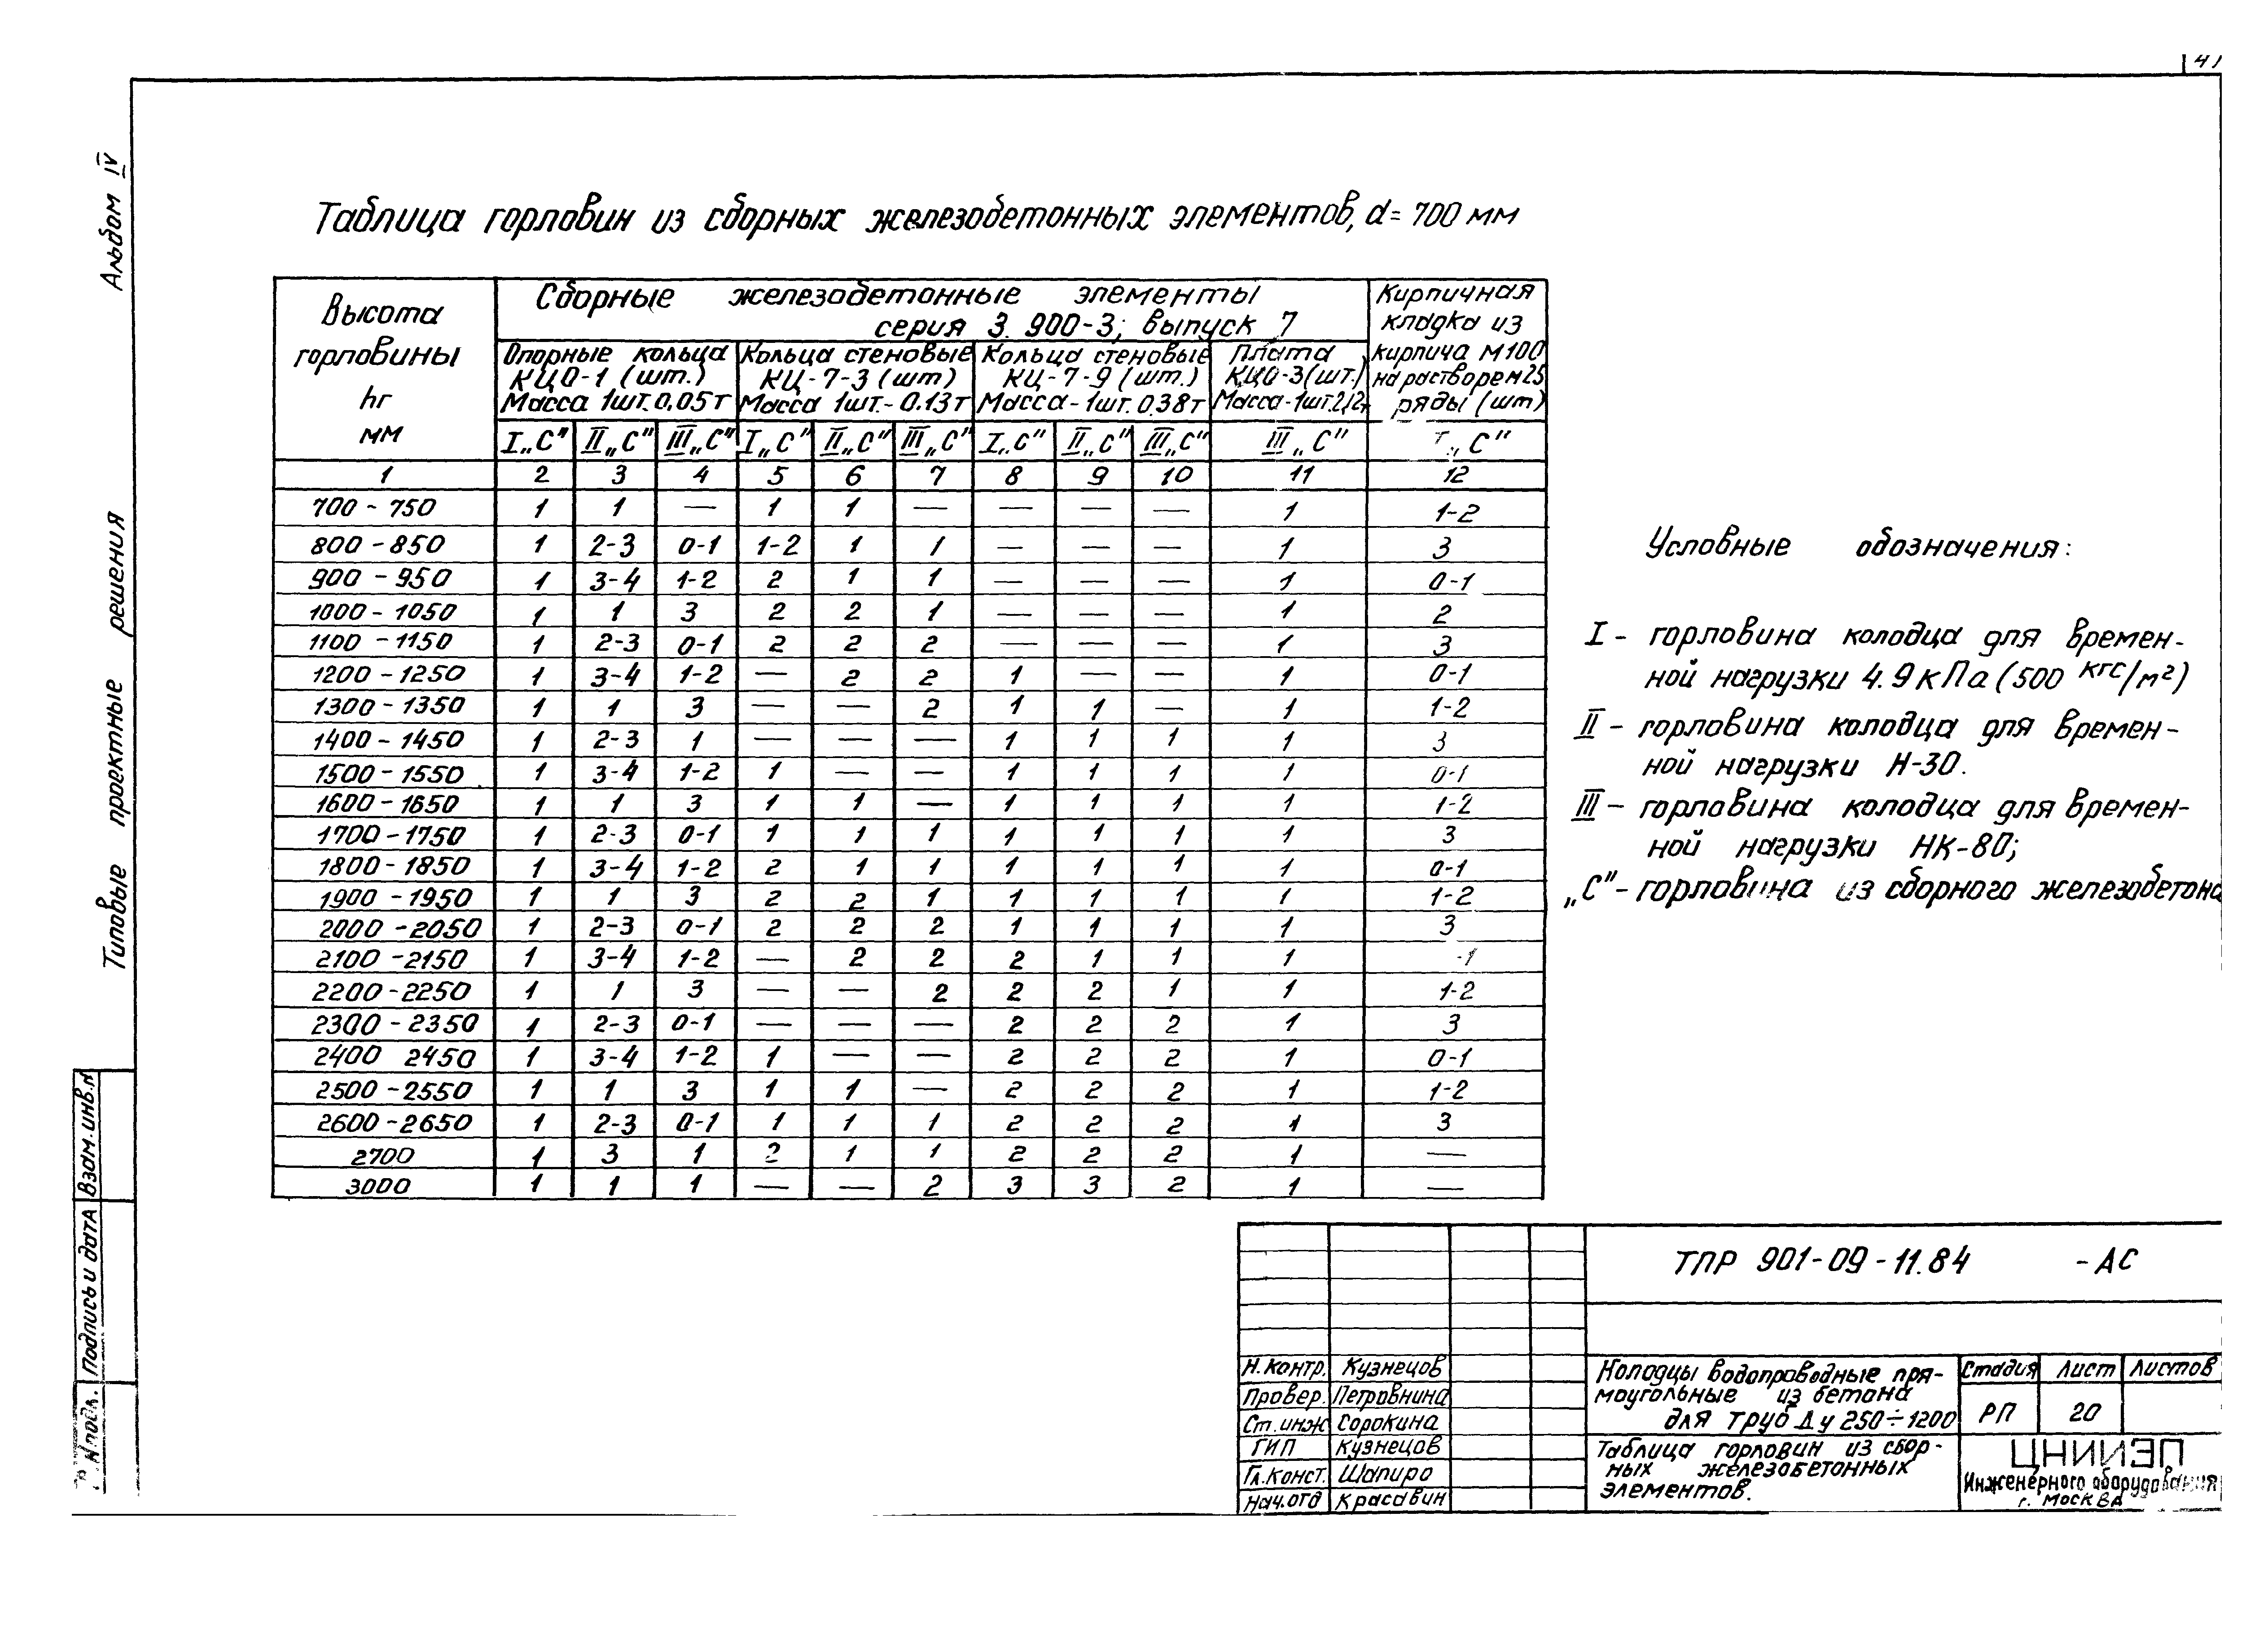 41
Альбом IV
Типовые проектные решения
Таблица горловин из сборных железобетонных элементов, d= 700 мм
Высота горловины hг мм
Сборные железобетонные элементы
серия 3. 900-3; выпуск 7
Кирпичная кладка из кирпича М100 на растворе М25 ряды (шт)
Опорные кольца КЦО-1 (шт.) Масса 1шт. 0,05т
Кольца стеновые КЦ-7-3 (шт) Масса 1шт.- 0.13т
Кольца стеновые КЦ-7-9 (шт.) Масса-1шт. 0.38т
Плата КЦО-3 (шт.) Масса-1шт.
I „С" II „С" III „С" I „С" II „С" III „С" I „С" II „С" III „С" III „С" „С"
1 2 3 4 5 6 7 8 9 10 11 12
700 - 750 1 1 — 1 1 — — — — 1 1-2
800 - 850 1 2-3 0-1 1-2 1 1 — — — 1 3
900 - 950 1 3-4 1-2 2 1 1 — — — 1 0-1
1000 - 1050 1 1 3 2 2 1 — — — 1 2
1100 - 1150 1 2-3 0-1 2 2 2 — — — 1 3
1200 - 1250 1 3-4 1-2 — 2 2 1 — — 1 0-1
1300 - 1350 1 1 3 — — 2 1 1 — 1 1-2
1400 - 1450 1 2-3 1 — — — 1 1 1 1 3
1500 - 1550 1 3-4 1-2 1 — — 1 1 1 1 0-1
1600 - 1650 1 1 3 1 1 — 1 1 1 1 1-2
1700 - 1750 1 2-3 0-1 1 1 1 1 1 1 1 3
1800 - 1850 1 3-4 1-2 2 1 1 1 1 1 1 0-1
1900 - 1950 1 1 3 2 2 1 1 1 1 1 1-2
2000 - 2050 1 2-3 0-1 2 2 2 1 1 1 1 3
2100 - 2150 1 3-4 1-2 — 2 2 2 1 1 1 -1
2200 - 2250 1 1 3 — — 2 2 2 1 1 1-2
2300 - 2350 1 2-3 0-1 — — — 2 2 2 1 3
2400 2450 1 3-4 1-2 1 — — 2 2 2 1 0-1
2500 - 2550 1 1 3 1 1 — 2 2 2 1 1-2
2600 - 2650 1 2-3 0-1 1 1 1 2 2 2 1 3
2700 1 3 1 2 1 1 2 2 2 1 —
3000 1 1 1 — — 2 3 3 2 1 —
Условные обозначения:
I - горловина колодца для времен-
ной нагрузки 4.9 кПа (500 кгс/м²)
II - горловина колодца для времен-
ной нагрузки Н-30.
III - горловина колодца для времен-
ной нагрузки НК-80;
„С" - горловина из сборного железобетона
Взам. инв. №
Подпись и дата
№ подл.
ТПР 901-09-11.84 -АС
Н. контр. Кузнецов
Провер. Петровнина
Ст. инж Сорокина
ГИП Кузнецов
Гл. конст. Шапиро
Нач. отд Красавин
Колодцы водопроводные пря-
моугольные из бетона
для труб Ду 250÷1200
Стадия Лист Листов
РП 20
Таблица горловин из сбор-
ных железобетонных
элементов.
ЦНИИЭП
Инженерного оборудования
г. Москва